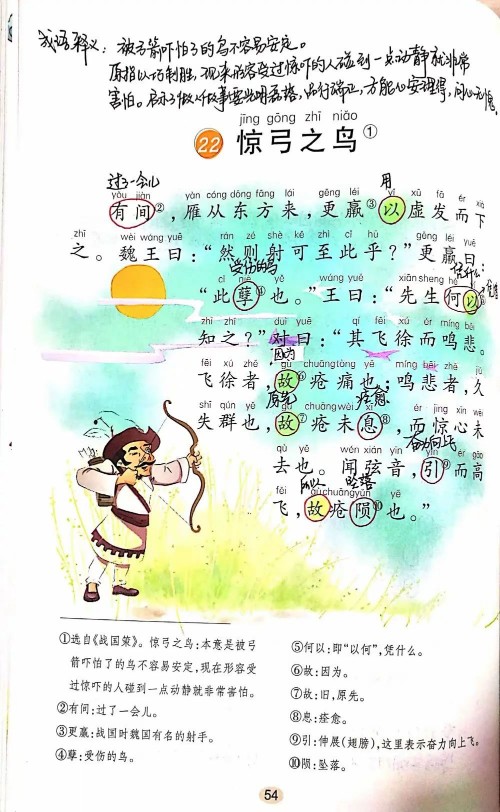 成语释义：被弓箭吓怕了的鸟不容易安定。
原指以巧制胜，现来形容受过惊吓的人碰到一点动静就非常
害怕。启示了做人做事要光明磊落，品行端正，方能心安理得，问心无愧。
jīng gōng zhī niǎo
22 惊弓之鸟①
过了一会儿
用
yǒu jiàn yàn cóng dōng fāng lái gēng léi yǐ xū fā ér xià
有间②，雁从东方来，更羸③以虚发而下
zhī wèi wáng yuē rán zé shè kě zhì cǐ hū gēng léi yuē
之。魏王曰：“然则射可至此乎？”更羸曰：
受伤的鸟
凭什么
cǐ niè yě wáng yuē xiān sheng hé yǐ
“此孽④也。”王曰：“先生何以⑤
zhī zhī duì yuē qí fēi xú ér míng bēi
知之？”对曰：“其飞徐而鸣悲。
因为
fēi xú zhě gù chuāng tòng yě míng bēi zhě jiǔ
飞徐者，故⑥疮痛也；鸣悲者，久
原先
痊愈
shī qún yě gù chuāng wèi xī ér jīng xīn wèi
失群也，故⑦疮未息⑧，而惊心未
奋力向上飞
qù yě wén xián yīn yǐn ér gāo
去也。闻弦音，引⑨而高
坠落
fēi gù chuāng yǔn yě
飞，故疮陨⑩也。”
①选自《战国策》。惊弓之鸟：本意是被弓
箭吓怕了的鸟不容易安定，现在形容受
过惊吓的人碰到一点动静就非常害怕。
②有间：过了一会儿。
③更羸：战国时魏国有名的射手。
④孽：受伤的鸟。
⑤何以：即“以何”，凭什么。
⑥故：因为。
⑦故：旧，原先。
⑧息：痊愈。
⑨引：伸展（翅膀），这里表示奋力向上飞。
⑩陨：坠落。
54